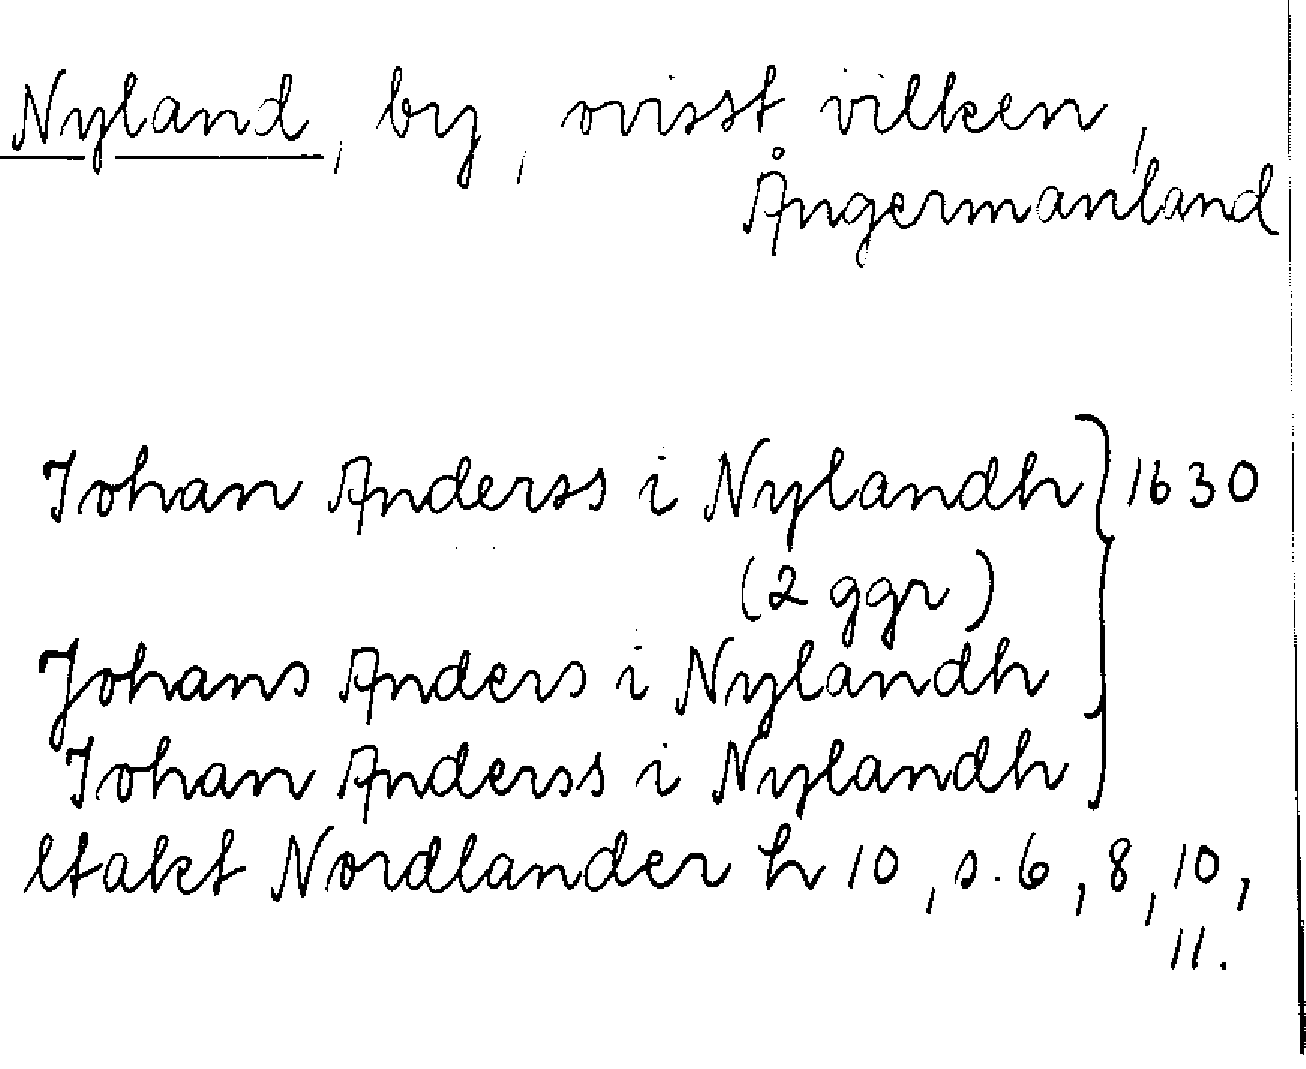 Nyland, by, ovisst vilken,
Ångermanland
Johan Anderss i Nylandh } 1630
(2 ggr)
Johans Anders i Nylandh
Johan Anderss i Nylandh
ltakt Nordlander h 10, s. 6, 8, 10,
11.